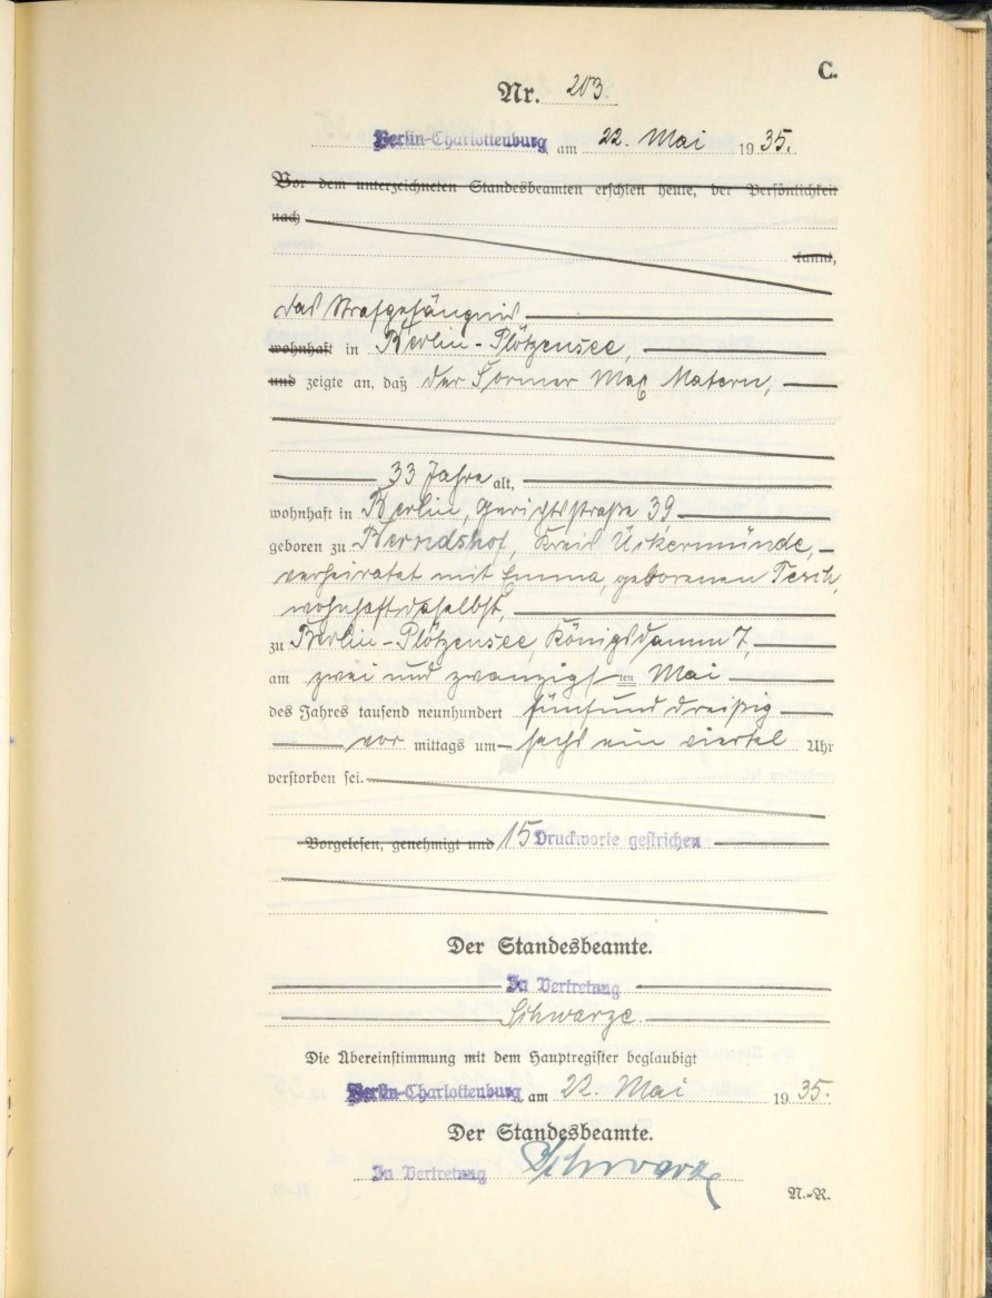 C.
Nr. 203.
Berlin-Charlottenburg am 22. Mai 1935.
Vor dem unterzeichneten Standesbeamten erschien heute, der Persönlichkeit
nach
kannt,
das Strafgefängnis
wohnhaft in Berlin-Plötzensee,
und zeigte an, daß der Former Max Matern,
33 Jahre alt,
wohnhaft in Berlin, Gerichtstraße 39
geboren zu Berndshof, Kreis Ückermünde,
verheiratet mit Emma, geborenen Tesch,
wohnhaft daselbst,
zu Berlin-Plötzensee, Königsdamm 7,
am zwei und zwanzigsten Mai
des Jahres tausend neunhundert fünfund dreißig
vor mittags um sechs ein viertel Uhr
verstorben sei.
Vorgelesen, genehmigt und 15 Druckworte gestrichen
Der Standesbeamte.
In Vertretung
Schwarze.
Die Übereinstimmung mit dem Hauptregister beglaubigt
Berlin-Charlottenburg am 22. Mai 1935.
Der Standesbeamte.
In Vertretung Schwarze
N.-R.